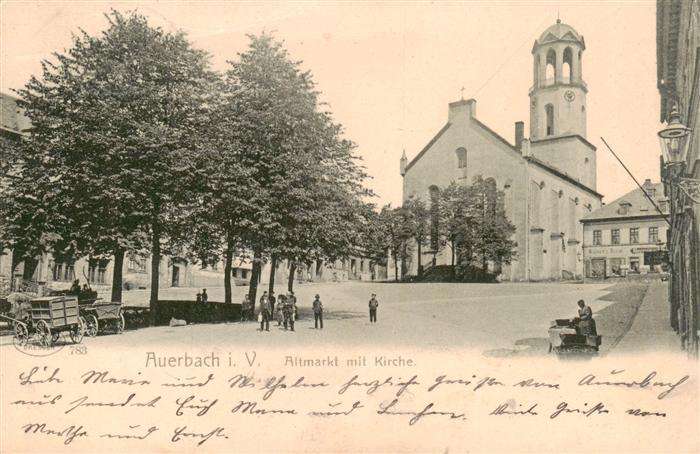 783
Auerbach i. V. Altmarkt mit Kirche.
Liebe Marie und Wilhelm herzliche Grüsse von Auerbach
aus sendet Euch Mama und
Viele Grüsse von
Marthe und Ernst.